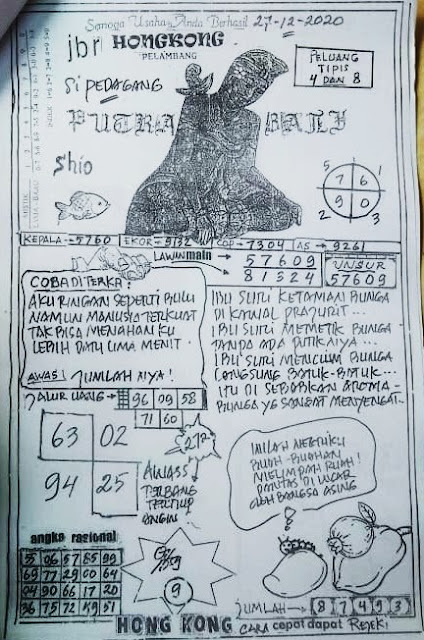 Semoga Usaha Anda Berhasil
27-12-2020
jbr HONGKONG
PELAMBANG
Si PEDAGANG
PELUANG
TIPIS
4 DAN 8
PUTRA BALI
Shio
5 1
7 6
9 0
2 3
KEPALA = 5760
EKOR = 9132
COP = 7304
AS → 9261
LAWAN main → 57609
81324
UNSUR
57609
COBA DITERKA:
AKU RINGAN SEPERTI BULU
NAMUN MANUSIA TERKUAT
TAK BISA MENAHAN KU
LEBIH DARI LIMA MENIT.
AWAS! JUMLAH NYA!
IBU SURI KETAMAN BUNGA
DI KAWAL PRAJURIT...
IBU SURI MEMETIK BUNGA
TANDA ADA PUTIKNYA...
IBU SURI MENCIUM BUNGA
LANGSUNG BATUK-BATUK...
ITU DI SEBABKAN AROMA
BUNGA YG SANGAT MENYENGAT..
JALUR UANG → 96 09 58
71 60
63 02
94 25
2712
AWASS
TERBANG
TERTIUP
ANGIN
INILAH NEGRIKU
BUAH-BUAHAN
MELIMPAH RUAH!
PANTAS DI INCAR
OLEH BANGSA ASING
?
angka rasional
55 96 57 85 99
69 77 29 00 64
04 90 66 17 20
36 75 72 49 51
9
JUMLAH → 8 7 4 9 3
HONG KONG CARA cepat dapat REJEKI